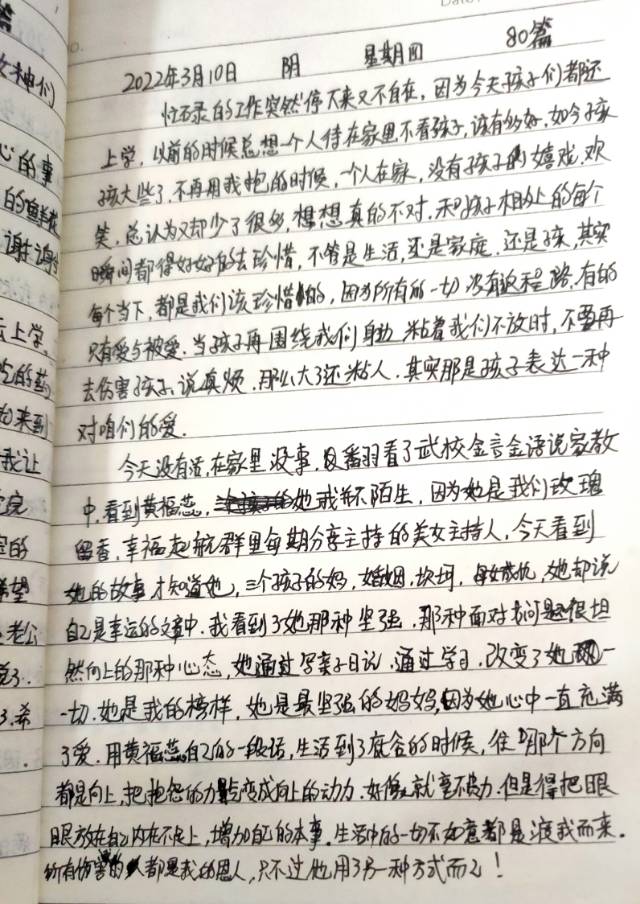 2022年3月10日 阴 星期四 80篇
忙碌的工作突然停下来又不自在，因为今天孩子们都还
上学，以前的时候总想一个人待在家里不看孩子，该有多好，如今孩
孩大些了，不再用我抱的时候，一个人在家，没有孩子的嬉戏，欢
笑，总认为又却少了很多，想想真的不对，和孩子相处的每个
瞬间都得好好的去珍惜，不管是生活，还是家庭，还是孩，其实
每个当下，都是我们该珍惜的，因为所有的一切没有返程路，有的
只有爱与被爱。当孩子再围绕我们身边 粘着我们不放时，不要再
去伤害孩子，说真烦，那么大了还粘人，其实那是孩子表达一种
对咱们的爱。
今天没有活，在家里没事，又翻羽看了武校金言金语说家教
中，看到黄福蕊，她我不陌生，因为她是我们玫瑰
留香，幸福起航群里每期分享主持的美女主持人，今天看到
她的故事才知道她，三个孩子的妈，婚姻，坎坷，母女成仇，她却说
自己是幸运的文章中，我看到了她那种坚强，那种面对问题很坦
然向上的那种心态，她通过写亲子日记，通过学习，改变了她一
一切，她是我的榜样，她是最坚强的妈妈，因为她心中一直充满
了爱。用黄福蕊自己的一段话，生活到了底谷的时候，往哪个方向
都是向上，把抱怨的力量变成向上的动力，好像就毫不费力，但是得把眼
眼放在自己内在不足上，增加自己的本事。生活中的一切不如意都是渡我而来。
所有伤害的人都是我的恩人，只不过他用了另一种方式而已！
心的事
谢谢
云上学，
我让
老公